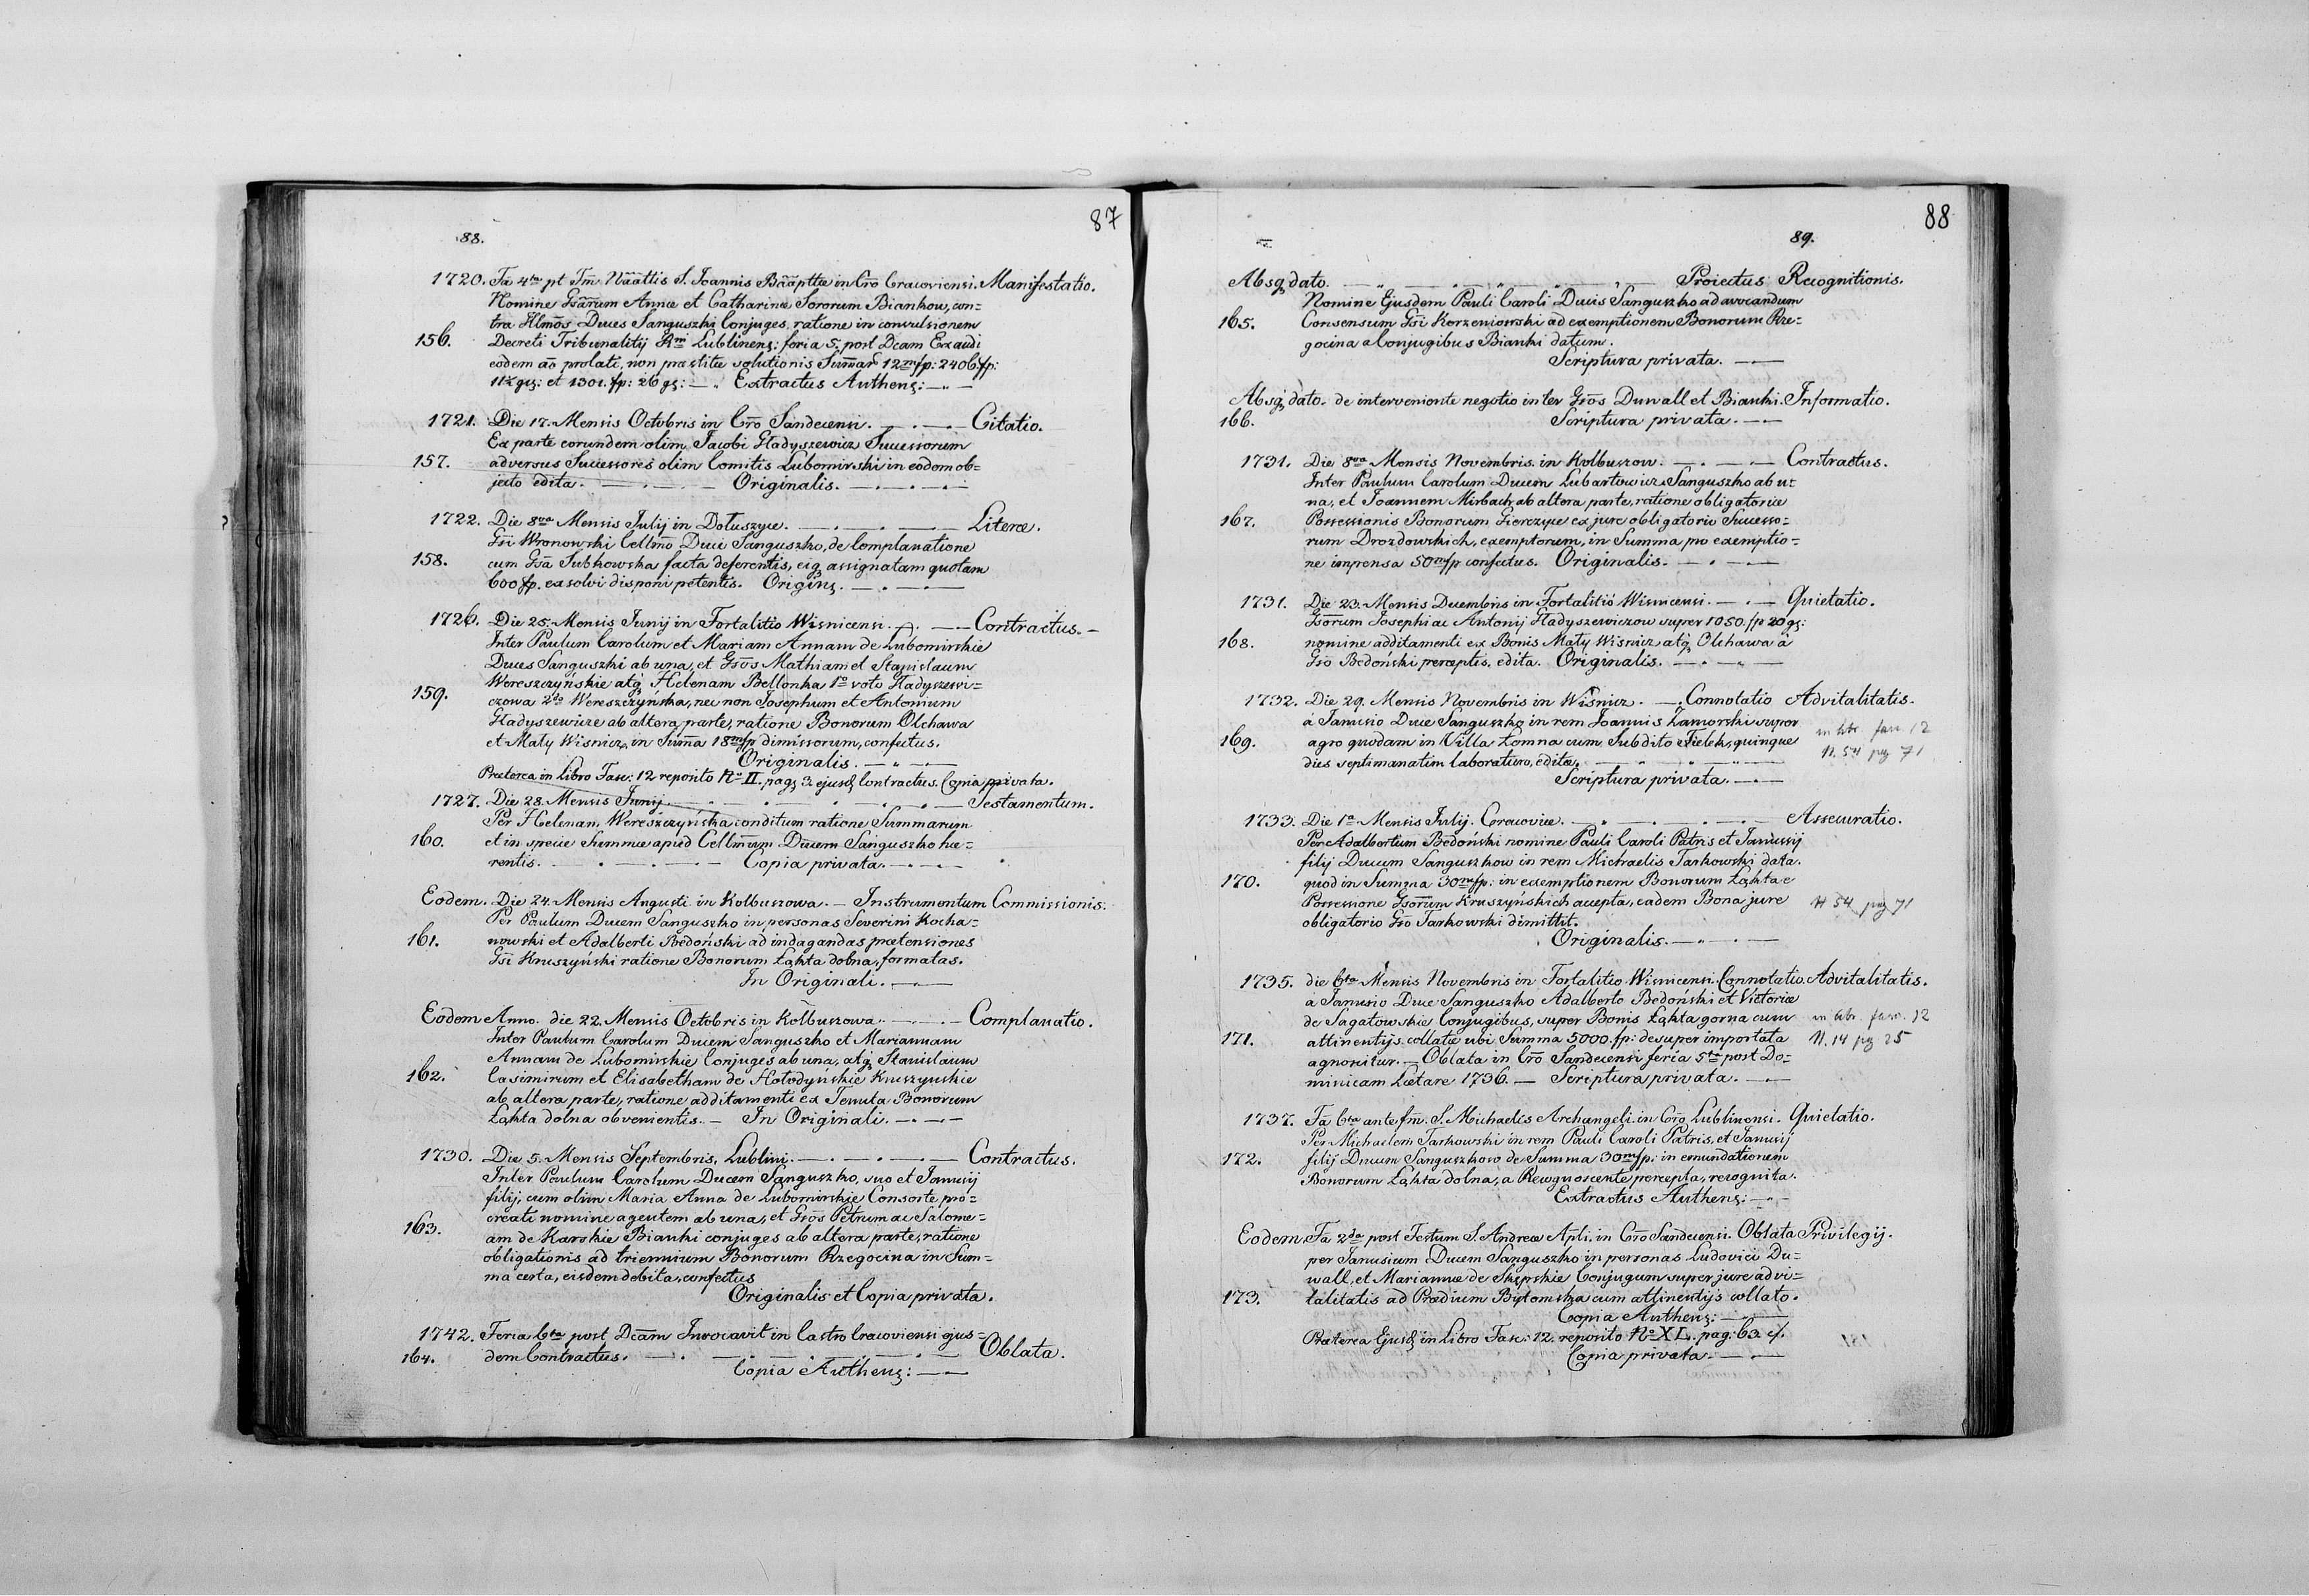 87
88.
1720. Fã 4ta pt Fm̃ Nãatlis S. Joannis Bãaptte in Cro Cracoviensi. Manifestatio.
Nomine Gsãrum Annæ et Catharinæ Sororum Biankow, con=
tra Illmos Duces Sanguszki Conjuges ratione in convulsionem
156. Decreti Tribunalitij Lublinens: feria 5. post Dcam Exaudi
eodem ao prolati, non præstitæ solutionis 12m fp: 2406 fp:
et 1301. fp: 26 gs: — „ Extractus Authens: — „ —
1721. Die 17. Mensis Octobris in Cro Sandecensi. — . — . — Citatio.
Ex parte eorundem olim Jacobi Gładyszewicz Successorum
157. adversus Successores olim Comitis Lubomirski in eodem ob=
jecto edita. — . — . — Originalis. — . — . —
1722. Die 8va Mensis Julij in Dołuszyce. — . — . — Literæ.
Gsi Wronowski Cellmo Duci Sanguszko, de Complanatione
158. cum Gsa Subkowska facta deferentis, eiq assignatam quotam
600 fp. exsolvi disponi petentis. Origins. — . — . —
1726. Die 25. Mensis Junij in Fortalitio Wisnicensi. — . — Contractus. —
Inter Paulum Carolum et Mariam Annam de Lubomirskie
Duces Sanguszki ab una, et Gsos Mathiam et Stanislaum
Wereszczyńskie atq Helenam Bellonka 1o voto Gładyszewi=
159. czowa 2do Wereszczyńska, nec non Josephum et Antonium
Gładyszewicze ab altera parte, ratione Bonorum Olchawa
et Mały Wisnicz, in Summa 18m fp dimissorum, confectus.
Originalis. — „ — „ —
Præterea in Libro Fasc: 12 reposito No II. pag 3. ejusd Contractus. Copia privata.
1727. Die 28. Mensis Junij — . — . — . — . — Testamentum.
Per Helenam Wereszczyńska conditum ratione Summarum
160. et in specie Summæ apud Cellmum Ducem Sanguszko hæ=
rentis. — . — . — . — Copia privata. — . — . —
Eodem. Die 24. Mensis Augusti in Kolbuszowa. — Instrumentum Commissionis.
Per Paulum Ducem Sanguszko in personas Severini Kocha=
161. nowski et Adalberti Bedoński ad indagandas prætensiones
Gsi Kruszyński ratione Bonorum Łąkta dolna, formatas.
In Originali. — . —
Eodem Anno. die 22. Mensis Octobris in Kolbuszowa. — . — . — Complanatio.
Inter Paulum Carolum Ducem Sanguszko et Mariannam
Annam de Lubomirskie Conjuges ab una, atq Stanislaum
162. Casimirum et Elisabetham de Hołodyńskie Kruszynskie
ab altera parte, ratione additamenti ex Tenuta Bonorum
Łąkta dolna obvenientis. — In Originali. — . — . —
1730. Die 5. Mensis Septembris, Lublini. — . — . — . — Contractus.
Inter Paulum Carolum Ducem Sanguszko, suo et Janusij
filij, cum olim Maria Anna de Lubomirskie Consorte pro=
creati nomine agentem ab una, et Gsos Petrum ac Salome=
163. am de Karskie Bianki conjuges ab altera parte, ratione
obligationis ad triennium Bonorum Rzegocina in Sum=
ma certa, eisdem debita, confectus
Originalis et Copia privata.
1742. Feria 6ta post Dcam Invocavit in Castro Cracoviensi ejus=
164. dem Contractus. — . — . — . — . — Oblata.
Copia Authens: — . —
88
89.
Absq dato. — „ — . — „ — . — Proiectus Recognitionis.
Nomine Ejusdem Pauli Caroli Ducis Sanguszko ad avocandum
165. Consensum Gsi Korzeniowski ad exemptionem Bonorum Rze=
gocina a Conjugibus Bianki datum.
Scriptura privata. — . —
Absq dato. de interveniente negotio inter Gsos Duwall et Bianki. Informatio.
166. Scriptura privata. — . —
1731. Die 8va Mensis Novembris in Kolbuszow. — . — . — Contractus.
Inter Paulum Carolum Ducem Lubartowicz Sanguszko ab u=
na, et Joannem Mirbach ab altera parte, ratione obligatoriæ
167. Possessionis Bonorum Gierczyce ex jure obligatorio Successo=
rum Drozdowskich, exemptorum, in Summa pro exemptio=
ne impensa 50m fp confectus. Originalis. — . — . —
1731. Die 23. Mensis Decembris in Fortalitio Wisnicensi. — . — Quietatio.
Gsorum Josephi ac Antonij Gładyszewiczow super 1050. fp 20 gs:
168. nomine additamenti ex Bonis Mały Wisnicz atq Olchawa à
Gso Bedoński perceptis, edita. Originalis. — . — „ —
1732. Die 29. Mensis Novembris in Wisnicz. — . Connotatio Advitalitatis.
à Janusio Duce Sanguszko in rem Joannis Zamorski super
169. agro quodam in Villa Łomna cum Subdito Fielek, quinque
in libr. fasc. 12
N. 54 pg 71
dies septimanatim laboraturo, edita.
Scriptura privata. — . —
1733. Die 1a Mensis Julij. Cracoviæ. — . — . — . — Assecuratio.
Per Adalbertum Bedoński nomine Pauli Caroli Patris et Janussij
filij Ducum Sanguszkow in rem Michaelis Tarkowski data.
170. quod in Summa 30m fp: in exemptionem Bonorum Łąkta e
Possessione Gsorum Kruszyńskich accepta, eadem Bona jure
N 54 pg 71
obligatorio Gso Tarkowski dimittit.
Originalis. — „ — . —
1735. die 6ta Mensis Novembris in Fortalitio Wisnicensi. Connotatio Advitalitatis.
à Janusio Duce Sanguszko Adalberto Bedoński et Victoriæ
de Sagatowskie Conjugibus, super Bonis Łąkta gorna cum
in libr. fasc. 12
171. attinentijs collatæ ubi Summa 5000. fp: desuper importata
N. 14 pg 25
agnoscitur. — Oblata in Cro Sandecensi feria 5ta post Do=
minicam Lætare 1736. — Scriptura privata. — . —
1737. Fã 6ta ante fm. S. Michaelis Archangeli. in Cro Lublinensi. Quietatio.
Per Michaelem Tarkowski in rem Pauli Caroli Patris, et Janusij
172. filij Ducum Sanguszkow de Summa 30m fp: in emundationem
Bonorum Łąkta dolna, a Recognoscente percepta, recognita.
Extractus Authens: — „ —
Eodem. Fã 2da post Festum S. Andreæ Apli. in Cro Sandecensi. Oblata Privilegij.
per Janusium Ducem Sanguszko in personas Ludovici Du=
wall, et Mariannæ de Skępskie Conjugum super jure advi=
173. talitatis ad Prædium Bytomska cum attinentijs collato.
Copia Authens: — . —
Præterea Ejusd in Libro Fasc: 12. reposito No XL. pag: 63.
Copia privata. — . —